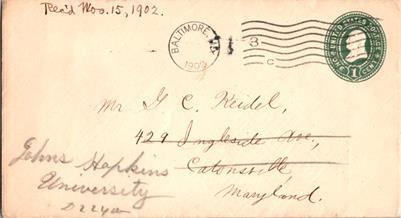 Rec'd Nov. 15, 1902.
BALTIMORE, MD.
1902
3
C
UNITED STATES POSTAGE
ONE 1 CENT
Mr G. C. Keidel,
429 Ingleside Ave,
Catonsville,
Maryland.
Johns Hopkins
University